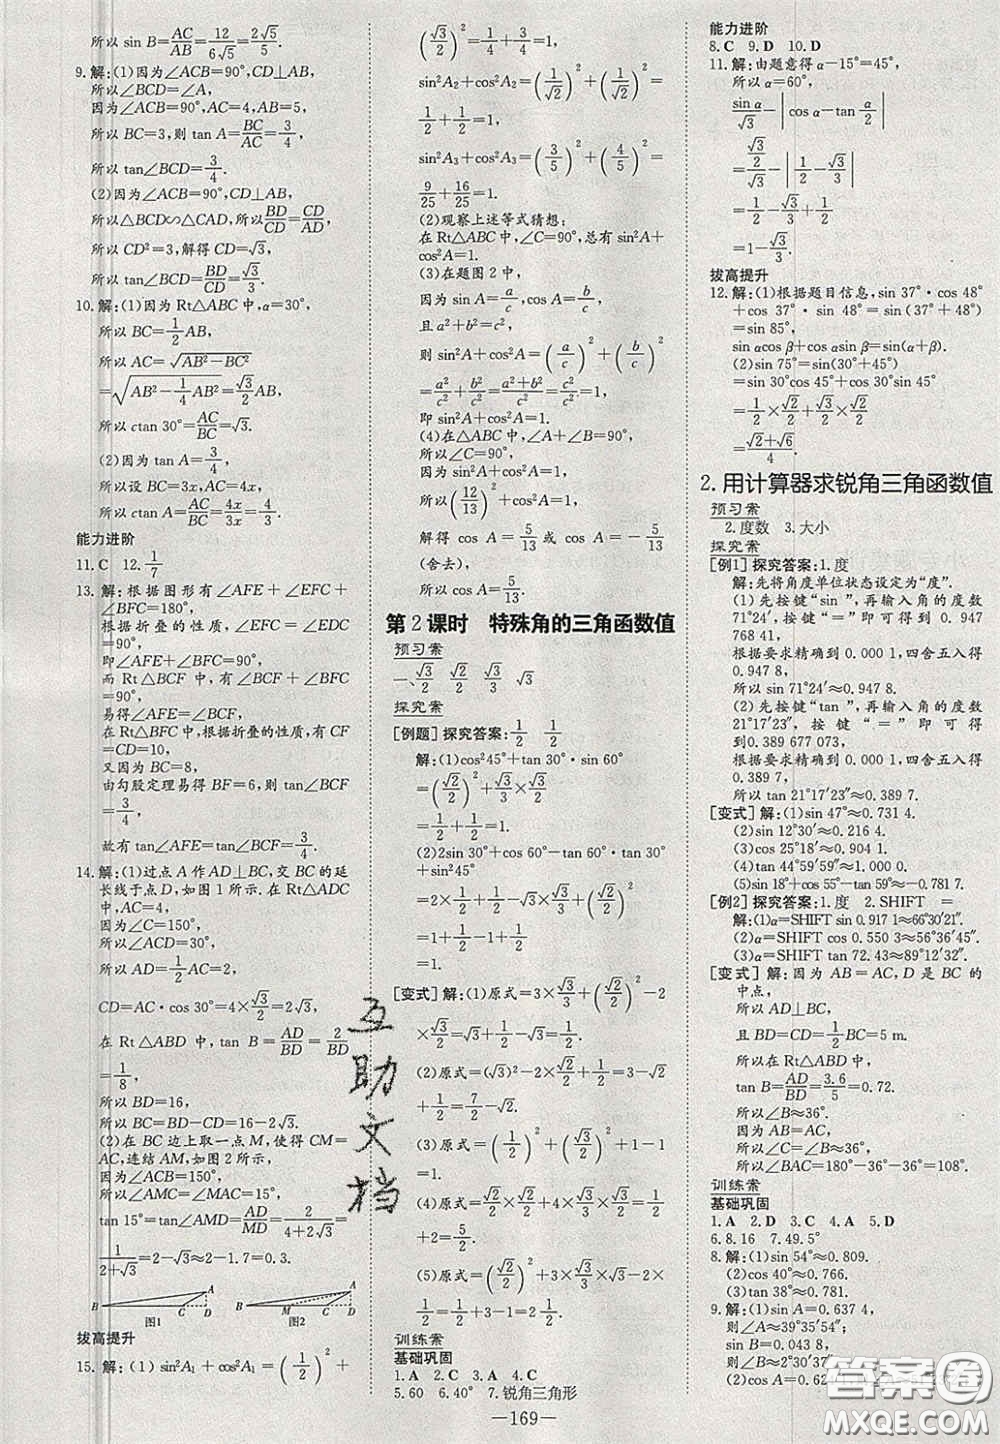 所以 sin B=AC/AB=12/(6√5)=2√5/5.
9.解:(1)因为∠ACB=90°,CD⊥AB,
所以∠BCD=∠A,
因为∠ACB=90°,AC=4,AB=5,
所以 BC=3,则 tan A=BC/AC=3/4,
所以 tan∠BCD=3/4.
(2)因为∠ACB=90°,CD⊥AB,
所以△BCD∽△CAD,所以BD/CD=CD/AD,
所以 CD²=3,解得 CD=√3,
所以 tan∠BCD=BD/CD=√3/3.
10.解:(1)因为 Rt△ABC 中,α=30°,
所以 BC=1/2 AB,
所以 AC=√(AB²-BC²)
=√(AB²-1/4 AB²)=√3/2 AB,
所以 ctan 30°=AC/BC=√3.
(2)因为 tan A=3/4,
所以设 BC=3x,AC=4x,
所以 ctan A=AC/BC=4x/3x=4/3.
能力进阶
11.C 12.1/7
13.解:根据图形有∠AFE+∠EFC+
∠BFC=180°,
根据折叠的性质,∠EFC=∠EDC
=90°,
即∠AFE+∠BFC=90°,
而 Rt△BCF 中,有∠BCF+∠BFC
=90°,
易得∠AFE=∠BCF,
在 Rt△BFC 中,根据折叠的性质,有 CF
=CD=10,
又因为 BC=8,
由勾股定理易得 BF=6,则 tan∠BCF=
3/4,
故有 tan∠AFE=tan∠BCF=3/4.
14.解:(1)过点 A 作 AD⊥BC,交 BC 的延
长线于点 D,如图 1 所示.在 Rt△ADC
中,AC=4,
因为∠C=150°,
所以∠ACD=30°,
所以 AD=1/2 AC=2,
CD=AC·cos 30°=4×√3/2=2√3,
在 Rt△ABD 中,tan B=AD/BD=2/BD=
1/8,
所以 BD=16,
所以 BC=BD-CD=16-2√3.
(2)在 BC 边上取一点 M,使得 CM=
AC,连结 AM,如图 2 所示,
因为∠ACB=150°,
所以∠AMC=∠MAC=15°,
tan 15°=tan∠AMD=AD/MD=2/(4+2√3)=
1/(2+√3)=2-√3≈2-1.7≈0.3.
B C D A 图1
B M C D A 图2
拔高提升
15.解:(1) sin²A₁+cos²A₁=(1/2)²+
(√3/2)²=1/4+3/4=1,
sin²A₂+cos²A₂=(1/√2)²+(1/√2)²=
1/2+1/2=1,
sin²A₃+cos²A₃=(3/5)²+(4/5)²=
9/25+16/25=1.
(2)观察上述等式猜想:
在 Rt△ABC 中,∠C=90°,总有 sin²A+
cos²A=1.
(3)在题图 2 中,
因为 sin A=a/c,cos A=b/c,
且 a²+b²=c²,
则 sin²A+cos²A=(a/c)²+(b/c)²
=a²/c²+b²/c²=(a²+b²)/c²=c²/c²=1,
即 sin²A+cos²A=1.
(4)在△ABC 中,∠A+∠B=90°,
所以∠C=90°,
因为 sin²A+cos²A=1,
所以(12/13)²+cos²A=1,
解得 cos A=5/13 或 cos A=-5/13
(舍去),
所以 cos A=5/13.
第 2 课时 特殊角的三角函数值
预习案
一、√3/2 √2/2 √3/3 √3
探究案
[例题] 探究答案:1/2 1/2
解:(1)cos²45°+tan 30°·sin 60°
=(√2/2)²+√3/3×√3/2
=1/2+1/2=1.
(2)2sin 30°+cos 60°-tan 60°·tan 30°
+sin²45°
=2×1/2+1/2-√3×√3/3+(√2/2)²
=1+1/2-1+1/2
=1.
[变式] 解:(1)原式=3×√3/3+(√2/2)²-2
×√3/2=√3+1/2-√3=1/2.
(2)原式=(√3)²-2×√3/2+1/2=3-√3
+1/2=7/2-√3.
(3)原式=(1/2)²+(√3/2)²=1/4+3/4
=1.
(4)原式=√2/2×√2/2+4×√3/2×√3/2=
1/2+3=7/2.
(5)原式=(√2/2)²-1/2+2×√3/2×√3=
1/2-1/2+3-1=2.
训练案
基础巩固
1.A 2.C 3.A 4.C
5.60 6.40° 7.锐角三角形
能力进阶
8.C 9.D 10.D
11.解:由题意得 α-15°=45°,
所以 α=60°,
sin α/√3-|cos α-tan α/2|
=(√3/2)/√3-|1/2-√3/3|
=1/2-√3/3+1/2
=1-√3/3.
拔高提升
12.解:(1)根据题目信息,sin 37°·cos 48°
+cos 37°·sin 48°=sin(37°+48°)
=sin 85°,
sin αcos β+cos αsin β=sin(α+β).
(2)sin 75°=sin(30°+45°)
=sin 30°cos 45°+cos 30°sin 45°
=1/2×√2/2+√3/2×√2/2
=(√2+√6)/4.
2.用计算器求锐角三角函数值
预习案
2.度数 3.大小
探究案
[例1] 探究答案:1.度
解:先将角度单位状态设定为“度”.
(1)先按键“sin”,再输入角的度数
71°24′,按键“=”即可得到0.947
768 41,
根据要求精确到0.000 1,四舍五入得
0.947 8.
所以 sin 71°24′≈0.947 8.
(2)先按键“tan”,再输入角的度数
21°17′23″,按键“=”即可得
到0.389 677 073,
根据要求精确到0.000 1,四舍五入得
0.389 7,
所以 tan 21°17′23″≈0.389 7.
[变式] 解:(1)sin 47°≈0.731 4.
(2)sin 12°30′≈0.216 4.
(3)cos 25°18′≈0.904 1.
(4)tan 44°59′59″≈1.000 0.
(5)sin 18°+cos 55°-tan 59°≈-0.781 7.
[例2] 探究答案:1.度 2.SHIFT =
解:(1)α=SHIFT sin 0.917 1≈66°30′21″.
(2)α=SHIFT cos 0.550 3≈56°36′45″.
(3)α=SHIFT tan 72.43≈89°12′32″.
[变式] 解:因为 AB=AC,D 是 BC 的
中点,
所以 AD⊥BC,
且 BD=CD=1/2 BC=5 m.
所以在 Rt△ABD 中,
tan B=AD/BD=3.6/5=0.72.
所以∠B≈36°.
因为 AB=AC,
所以∠C=∠B≈36°,
所以∠BAC=180°-36°-36°=108°.
训练案
基础巩固
1.A 2.D 3.C 4.A 5.D
6.8.16 7.49.5°
8.解:(1)sin 54°≈0.809.
(2)cos 40°≈0.766.
(3)tan 38°≈0.781.
9.解:(1)sin A=0.637 4,
则∠A≈39°35′54″;
sin B=0.0
则∠B≈
(2)cos A=0.62
互助文档
答案圈
MXQE.COM
—169—